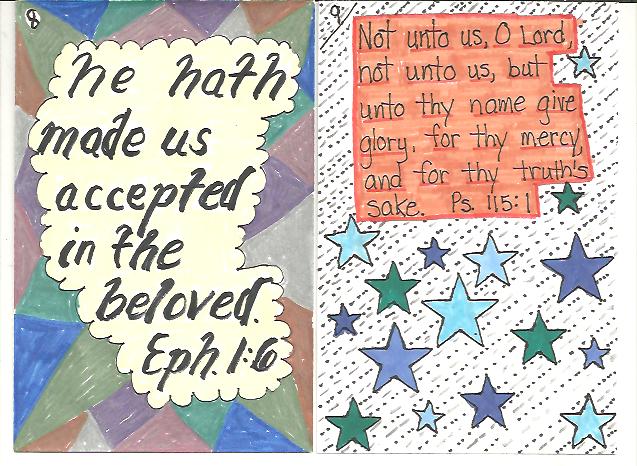 8
he hath
made us
accepted
in the
beloved.
Eph. 1:6
9
Not unto us, O Lord,
not unto us, but
unto thy name give
glory, for thy mercy,
and for thy truth's
sake. Ps. 115:1